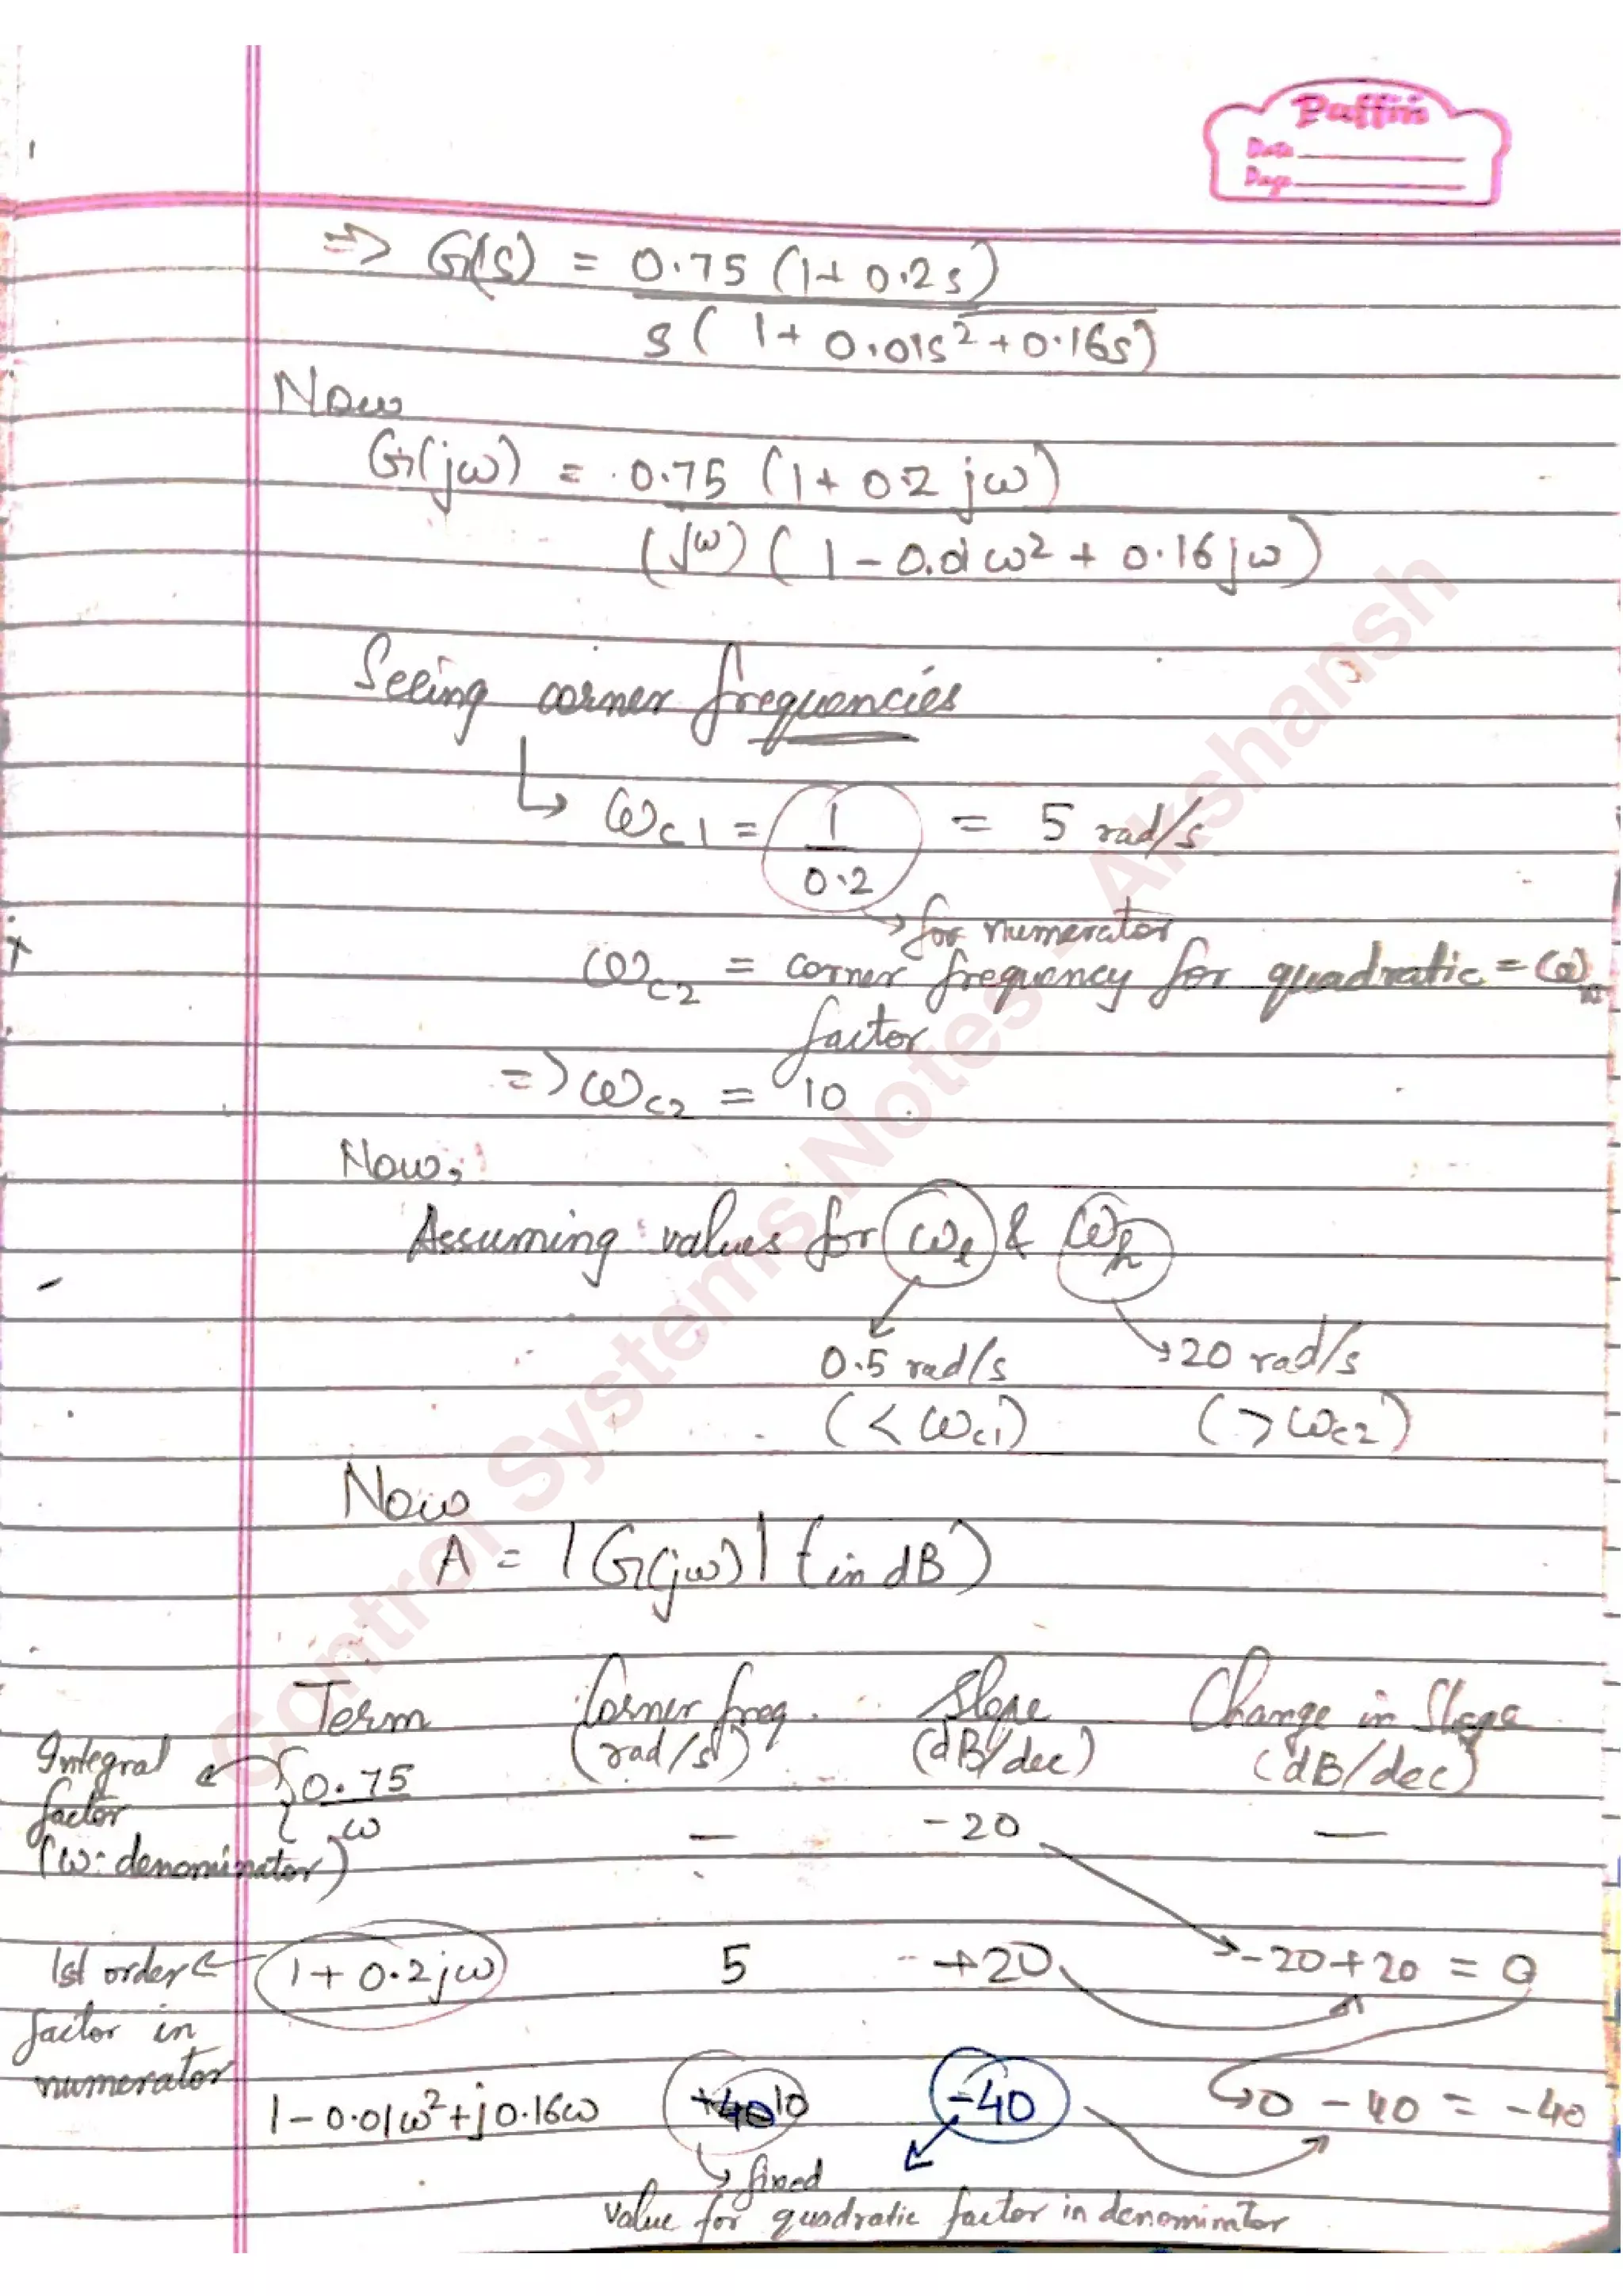 Puffin
Date
Page
=> G(s) = 0.75 (1+ 0.2s)
s( 1+ 0.01s²+0.16s)
Now
G(jω) = 0.75 (1+ 0.2 jω)
(jω) ( 1 - 0.01ω² + 0.16jω)
Seeing corner frequencies
↳ ωc1 = 1 = 5 rad/s
0.2
→ for numerator
ωc2 = corner frequency for quadratic = ωn
factor
=> ωc2 = 10
Now,
Assuming values for ωl & ωh
0.5 rad/s → 20 rad/s
(< ωc1) (> ωc2)
Now
A = |G(jω)| (in dB)
Term Corner freq. Slope Change in Slope
(rad/s) (dB/dec) (dB/dec)
Integral
factor
(ω: denominator)
0.75
ω — -20 —
1st order
factor in
numerator
1+ 0.2jω 5 +20 -20+20 = 0
1-0.01ω²+j0.16ω +40 10 -40 0 - 40 = -40
↳ fixed
value for quadratic factor in denominator
Control Systems Notes - Akshansh